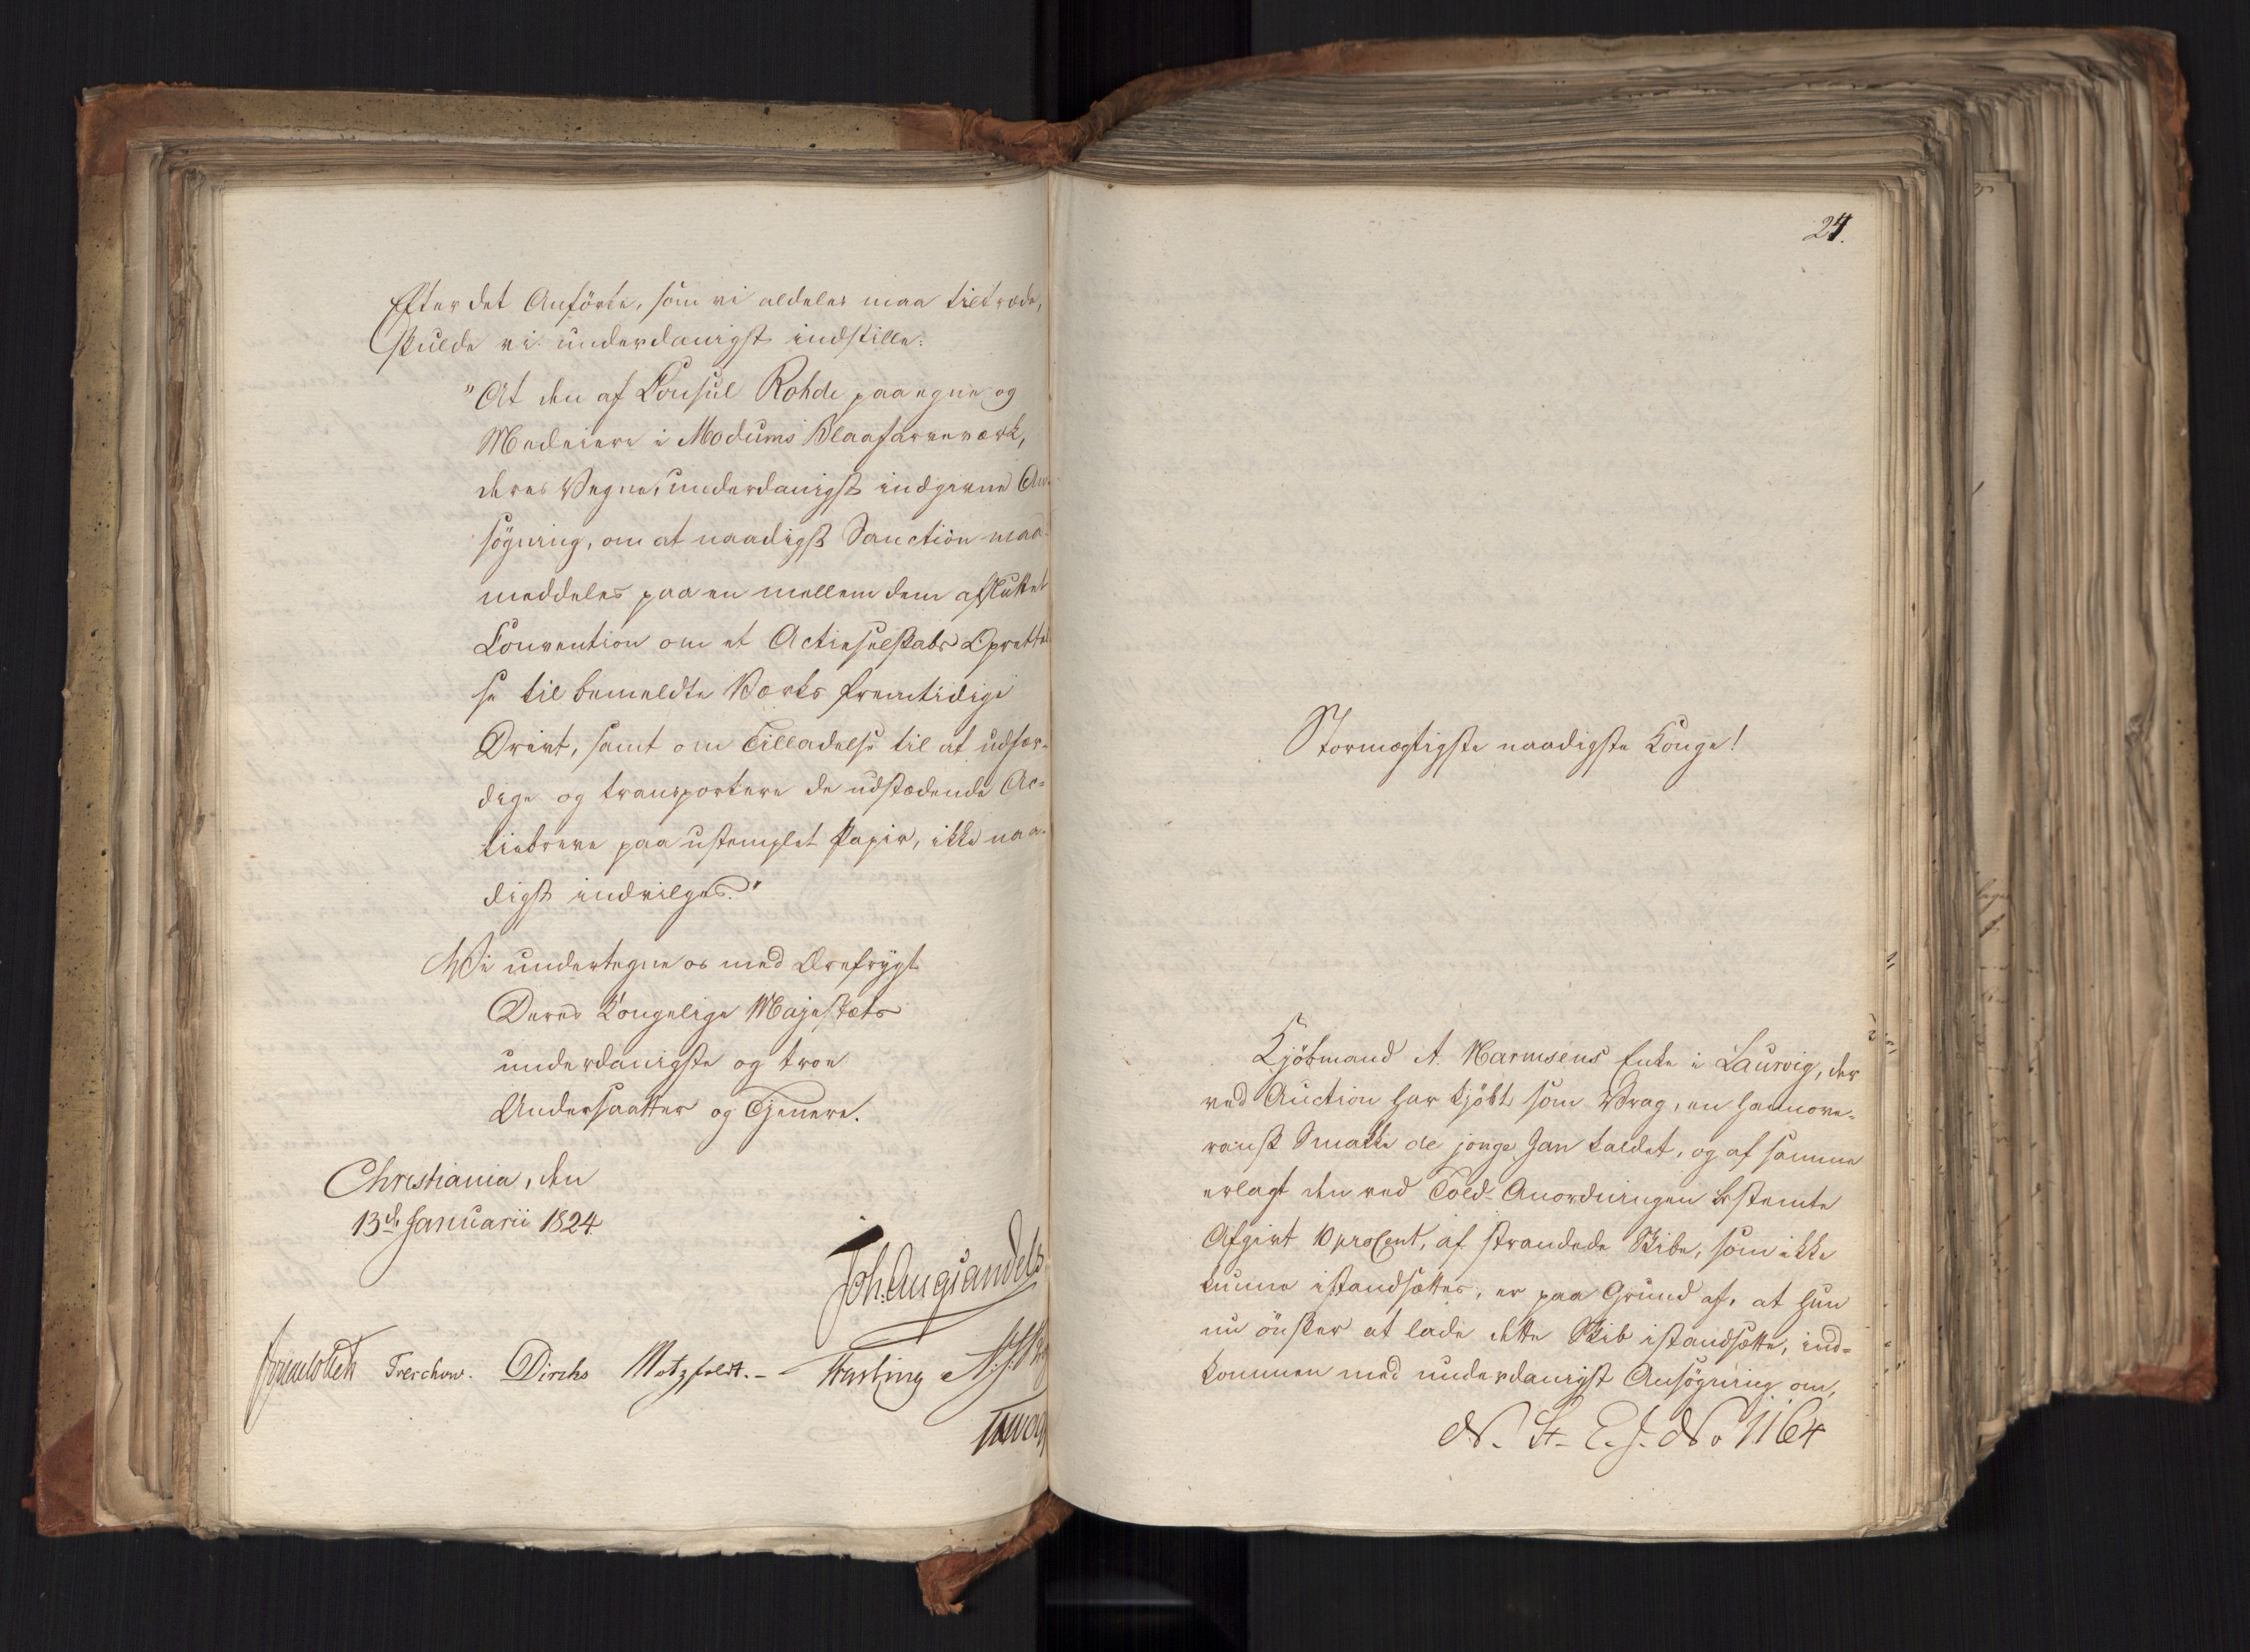 Efter det Anförte, som vi aldeles maa tiltræde,
skulde vi underdanigst indstille:
"At den af Consul Rohde paa egne og
Medeiere i Modums Blaafarveværk,
deres Vegne, underdanigst indgivne An-
søgning, om at naadigst Sanction maa
meddeles paa en mellem dem afsluttet
Convention om et Actieselskabs Oprettel
se til bemeldte Værks fremtidige
Drivt, samt om Tilladelse til at udfær-
dige og transportere de udstædende Ac-
tiebreve paa ustemplet Papir, ikke naa-
digst indvilges."
Vi undertegne os med Ærefrygt
Deres Kongelige Majestæts
underdanigste og troe
Undersaatter og Tjenere.
Christiania, den
13de Januarii 1824.
Joh. Aug. Sandels
Treschow. Diriks Motzfeldt.- Fasting
24.
Stormægtigste naadigste Konge!
Kjöbmand A. Harmsens Enke i Laurvig, der
ved Auction har kjöbt som Vrag, en hannove-
ransk Smakke de jonge Jan kaldet, og af samme
erlagt den ved Told-Anordningen bestemte
Afgivt 10 proCent, af strandede Skibe, som ikke
kunne istandsættes, er paa Grund af, at hun
nu önsker at lade dette Skib istandsætte, ind-
kommen med underdanigst Ansögning om,
N. St. E. J. No 1164